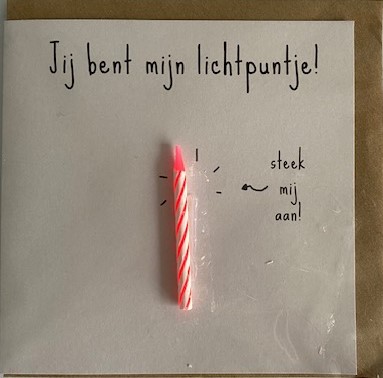 Jij bent mijn lichtpuntje!
steek
mij
aan!